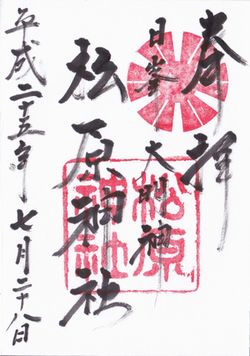 奉拝
日峯大明神
松原神社
松原神社
平成二十五年七月二十八日